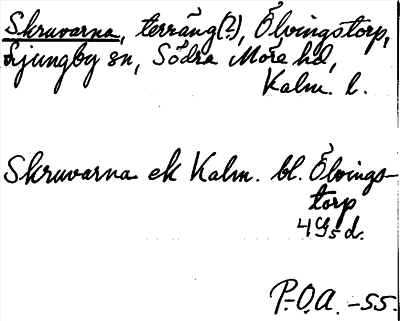 Skruvarna, terräng(?), Ölvingstorp,
Ljungby sn, Södra Möre hd,
Kalm. l.
Skruvarna ek Kalm. bl. Ölvings-
torp
4G5d.
P.O.A. -55.